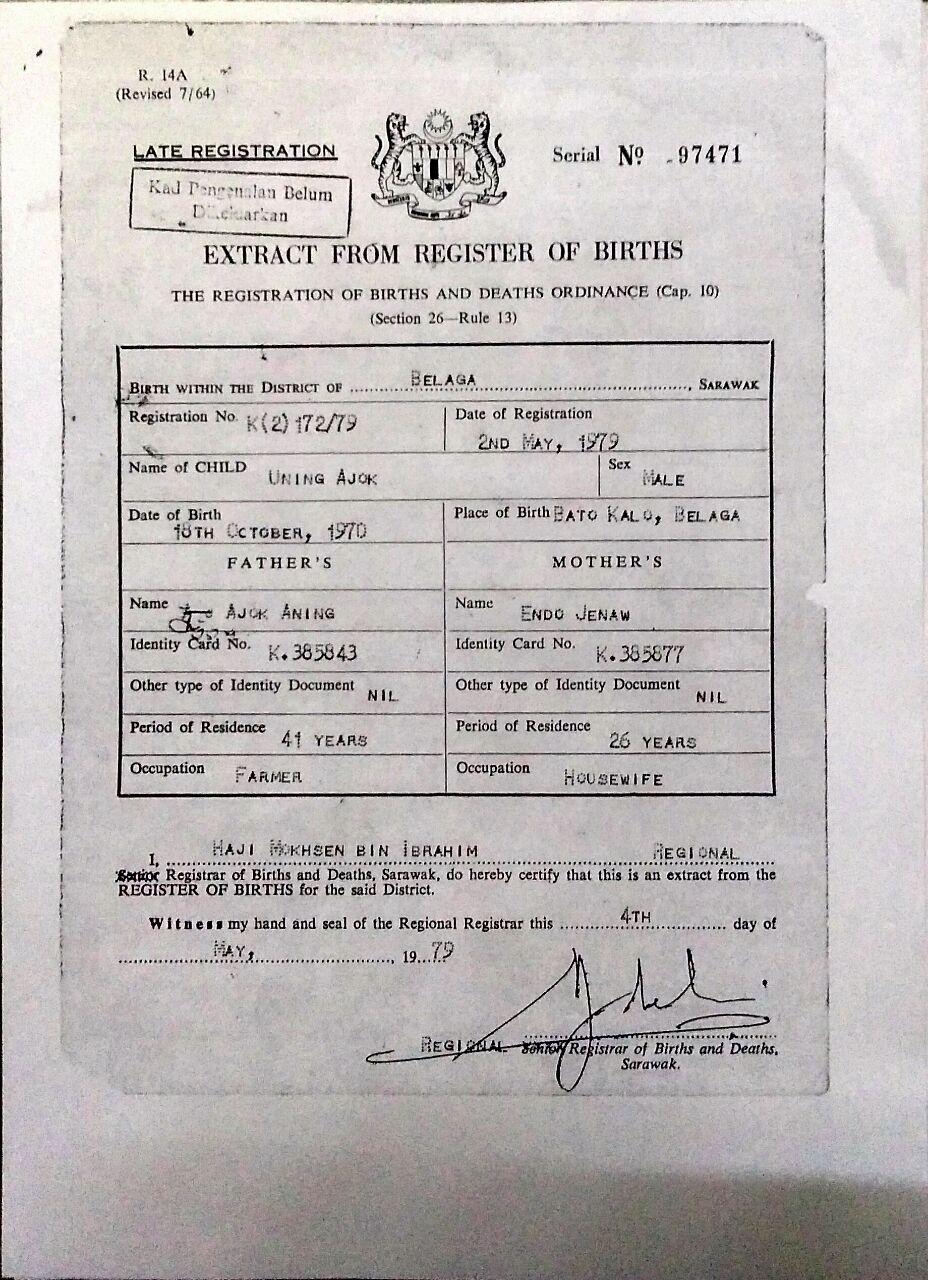 R. 14A
(Revised 7/64)
LATE REGISTRATION
Serial No. 97471
Kad Pengenalan Belum
Dikeluarkan
EXTRACT FROM REGISTER OF BIRTHS
THE REGISTRATION OF BIRTHS AND DEATHS ORDINANCE (Cap. 10)
(Section 26—Rule 13)
BIRTH WITHIN THE DISTRICT OF BELAGA, SARAWAK
Registration No. K(2)172/79
Date of Registration
2ND MAY, 1979
Name of CHILD UNING AJOK
Sex
MALE
Date of Birth
18TH OCTOBER, 1970
Place of Birth BATO KALO, BELAGA
FATHER'S
MOTHER'S
Name AJOK ANING
Name ENDO JENAW
Identity Card No. K.385843
Identity Card No. K.385877
Other type of Identity Document NIL
Other type of Identity Document NIL
Period of Residence 41 YEARS
Period of Residence 26 YEARS
Occupation FARMER
Occupation HOUSEWIFE
I, HAJI MOKHSEN BIN IBRAHIM REGIONAL
Senior Registrar of Births and Deaths, Sarawak, do hereby certify that this is an extract from the
REGISTER OF BIRTHS for the said District.
Witness my hand and seal of the Regional Registrar this 4TH day of
MAY, 1979
REGIONAL Senior Registrar of Births and Deaths,
Sarawak.